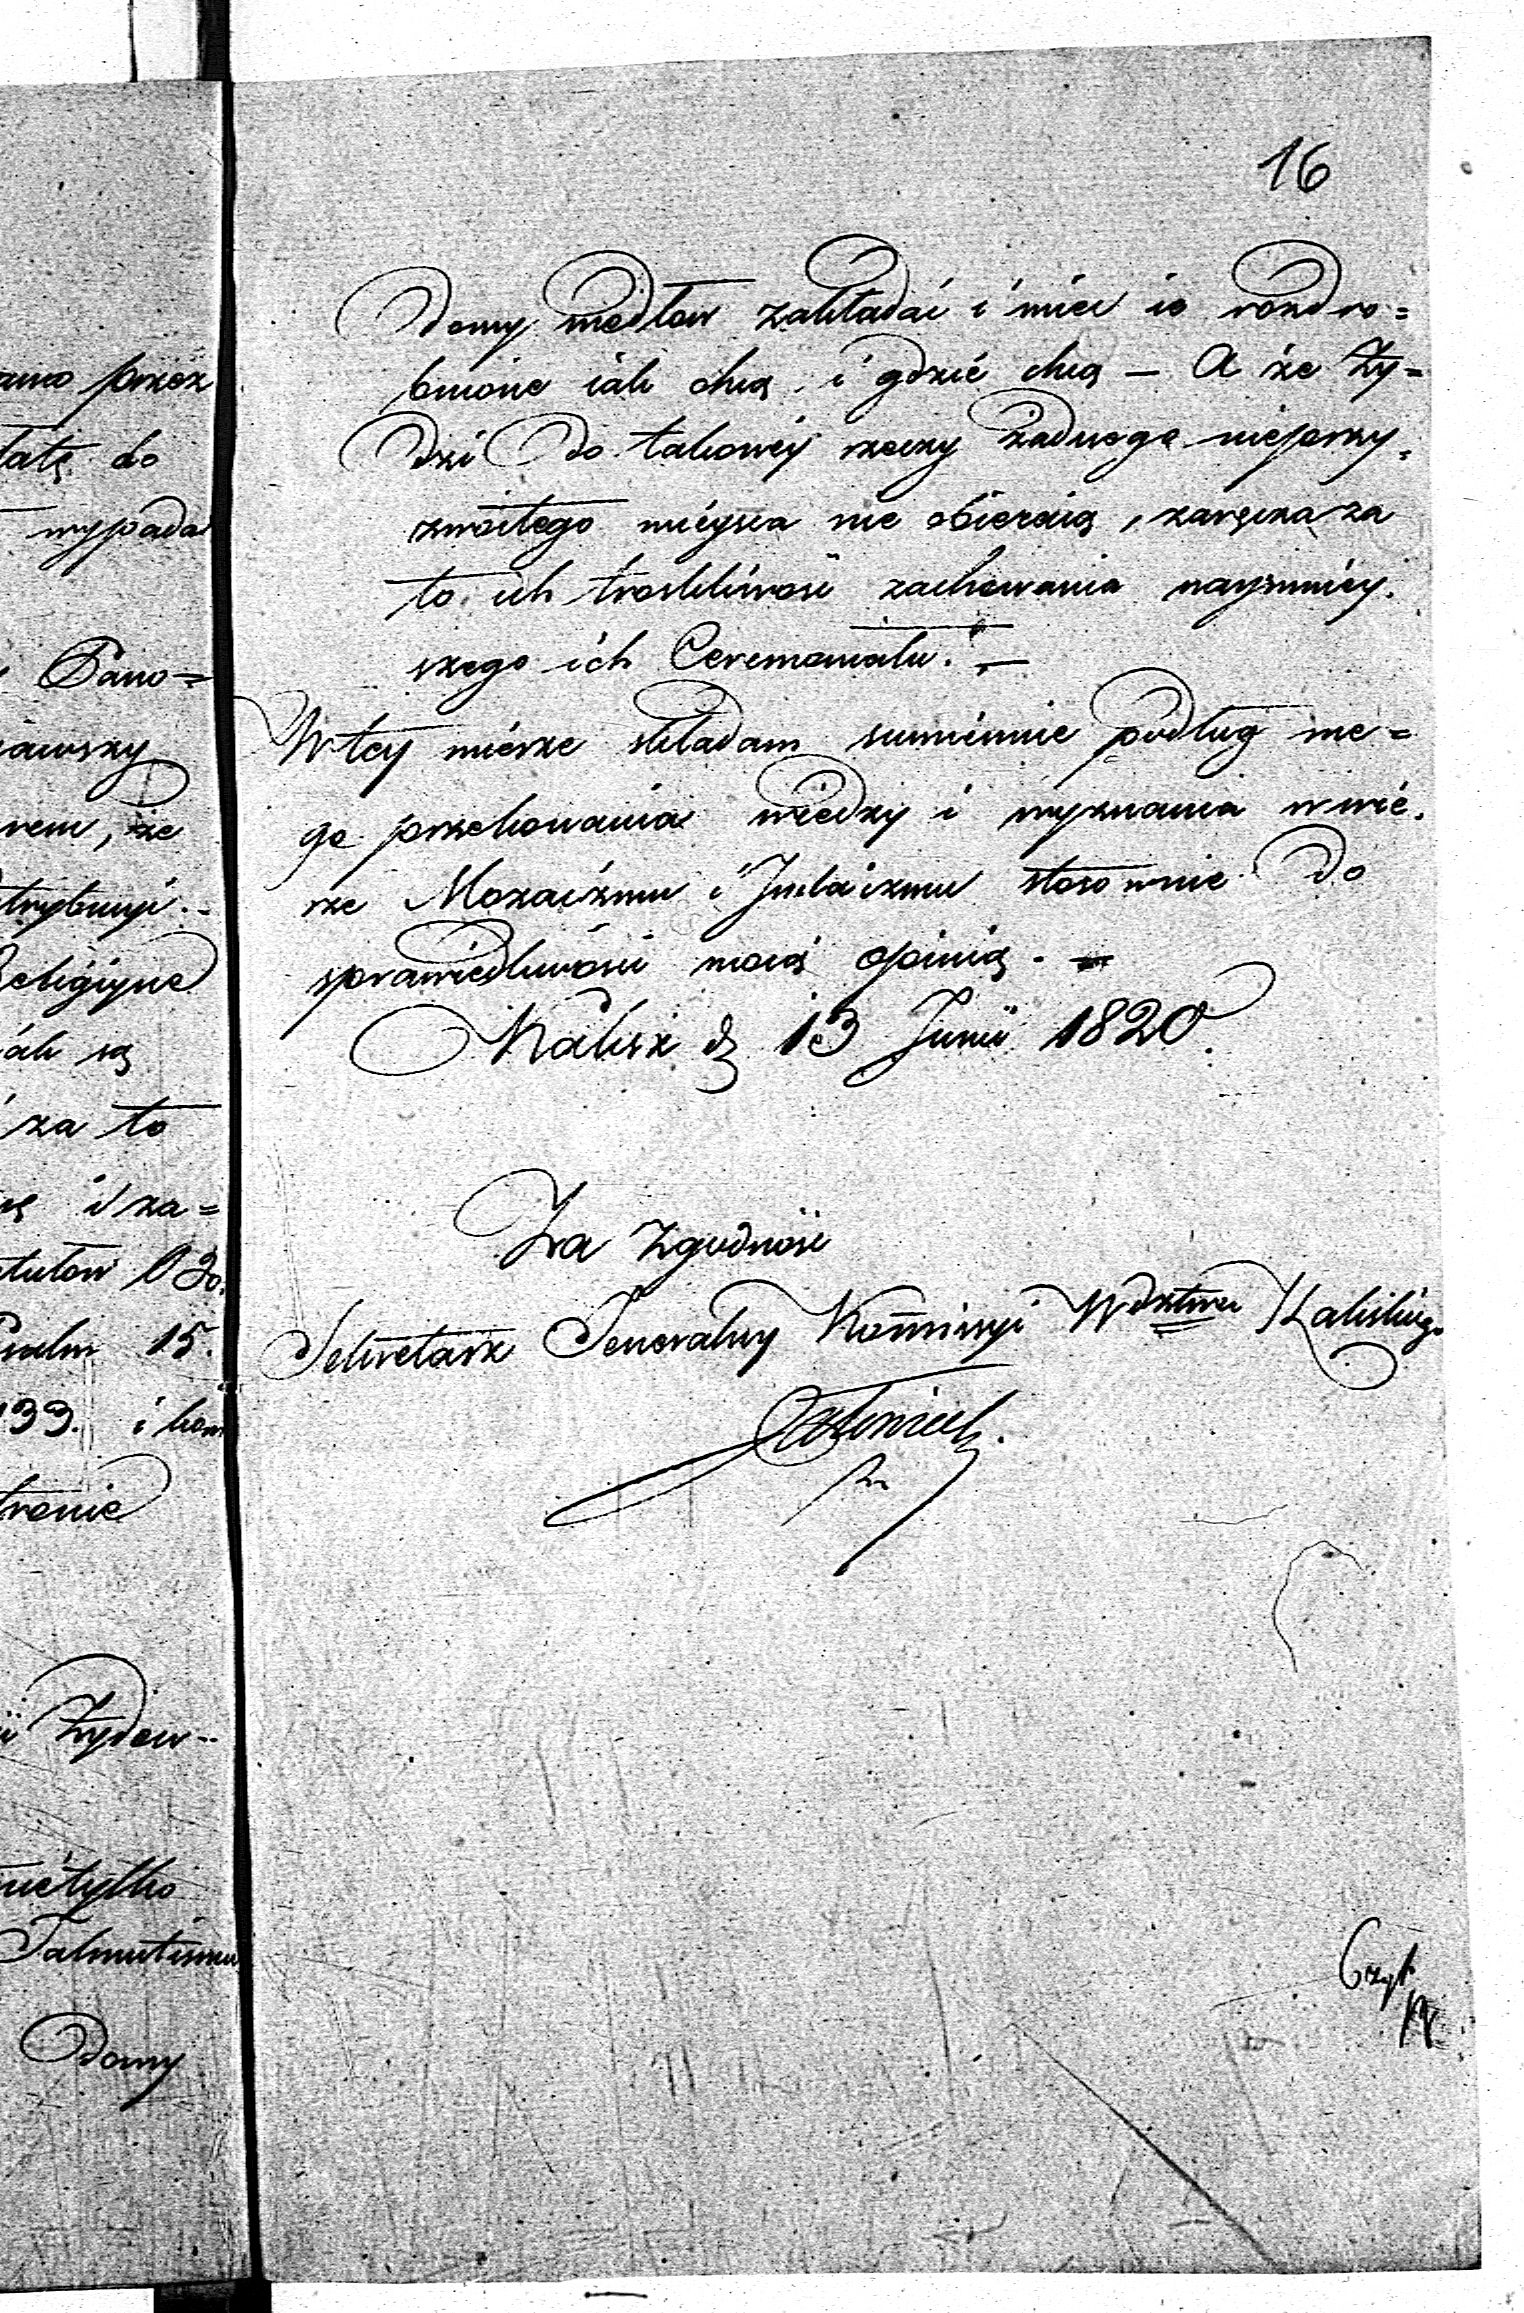 16
Domy modłow zakładać i mieć ie rozdro=
bnione iak chcą, i gdzie chcą — A że Ży=
dzi do takowéy rzeczy żadnego nieprzy=
zwoitego mieysca nie obieraią, zaręcza za
to ich troskliwość zachowania naymniey.
szego ich Ceremoniału. —
W tey mierze składam sumiennie podług me=
go przekonania wiedzy i wyznania w wie.
rze Mozaizmu i Judaizmu stosownie do
sprawiedliwości moią opinią. —
Kalisz d 13 Junii 1820.
Za Zgodność
Sekretarz Jeneralny Kommissyi Wdztwa Kaliskiego
przez
łatę do
wypada
Pano=
że
trybuyi.
Religiyne
iak są
za to
i za=
Psalm 15.
133. i
tronie
i Żydow=
nietylko
Talmutismu
Domy